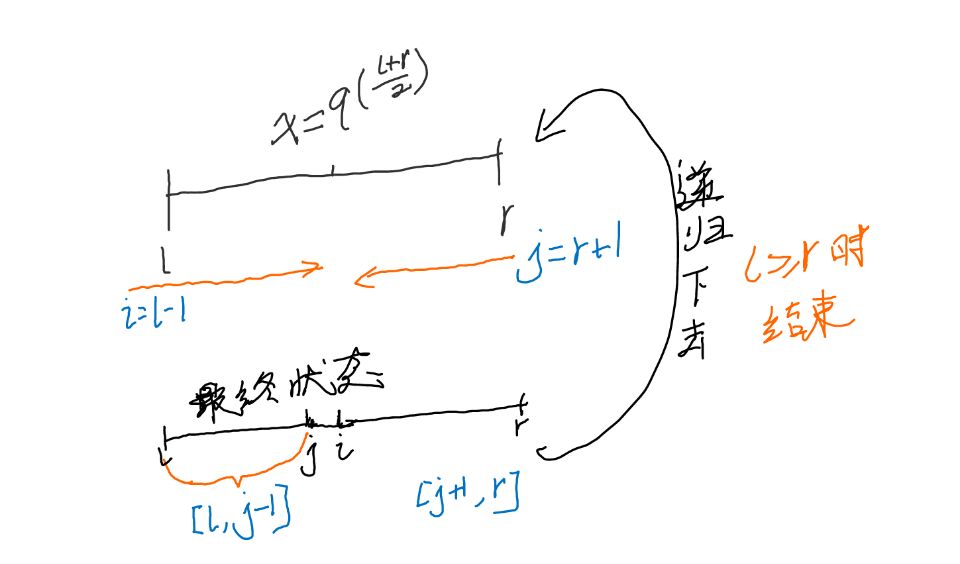 x=q(l+r/2)
l
r
i=l-1
j=r+1
递归下去
l≥r时
结束
最终状态
l
j
i
r
[l,j-1]
[j+1,r]